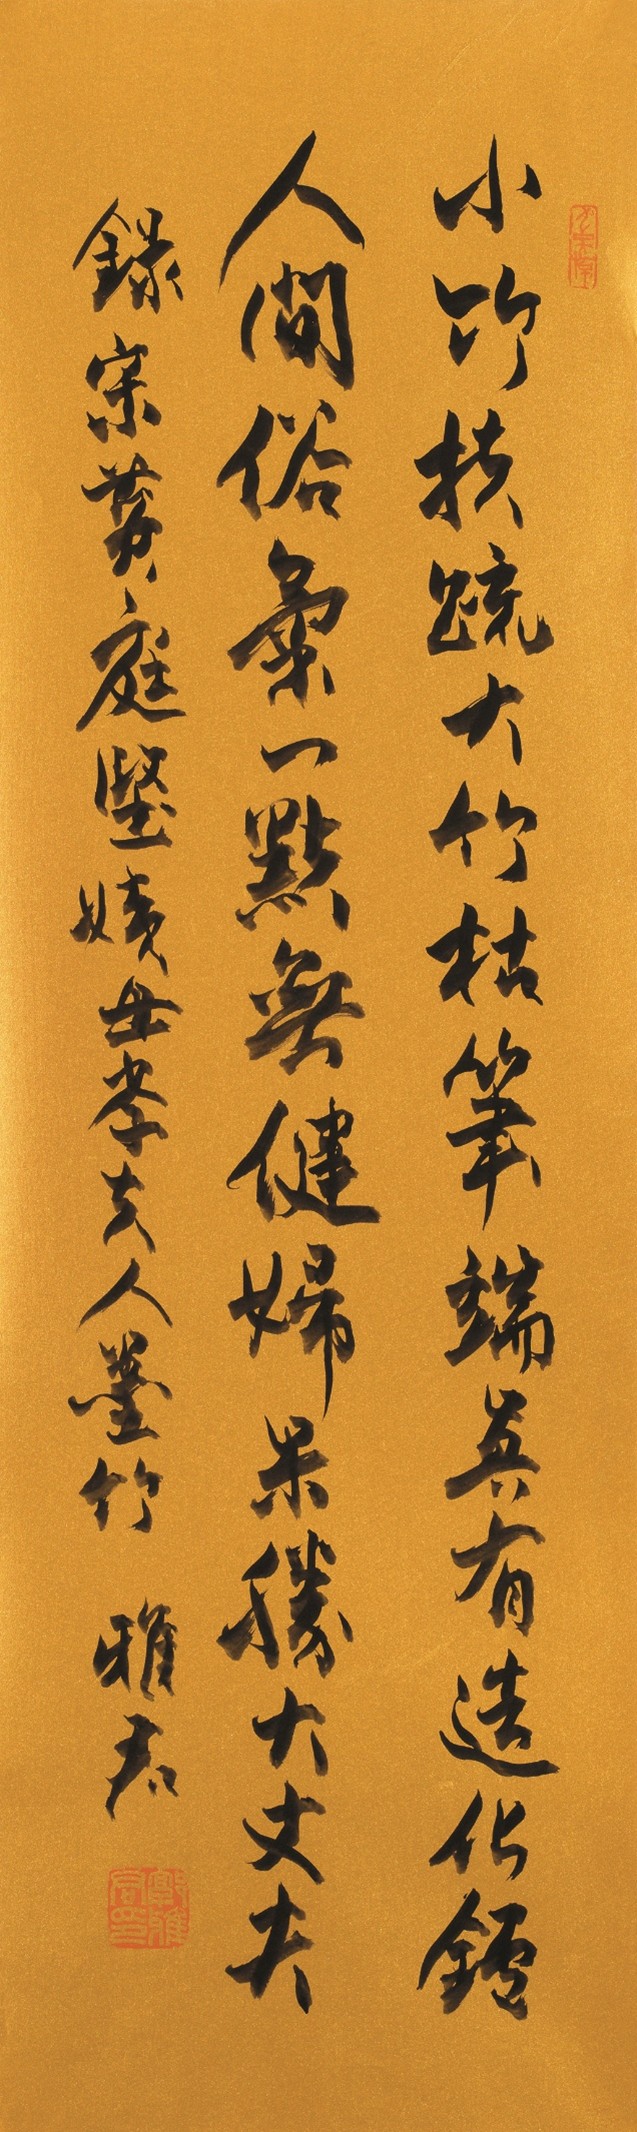 小竹扶疏大竹枯筆端真有造化鑪
人間俗氣一點無健婦果勝大丈夫
錄宋黃庭堅姨母李夫人墨竹 雅君